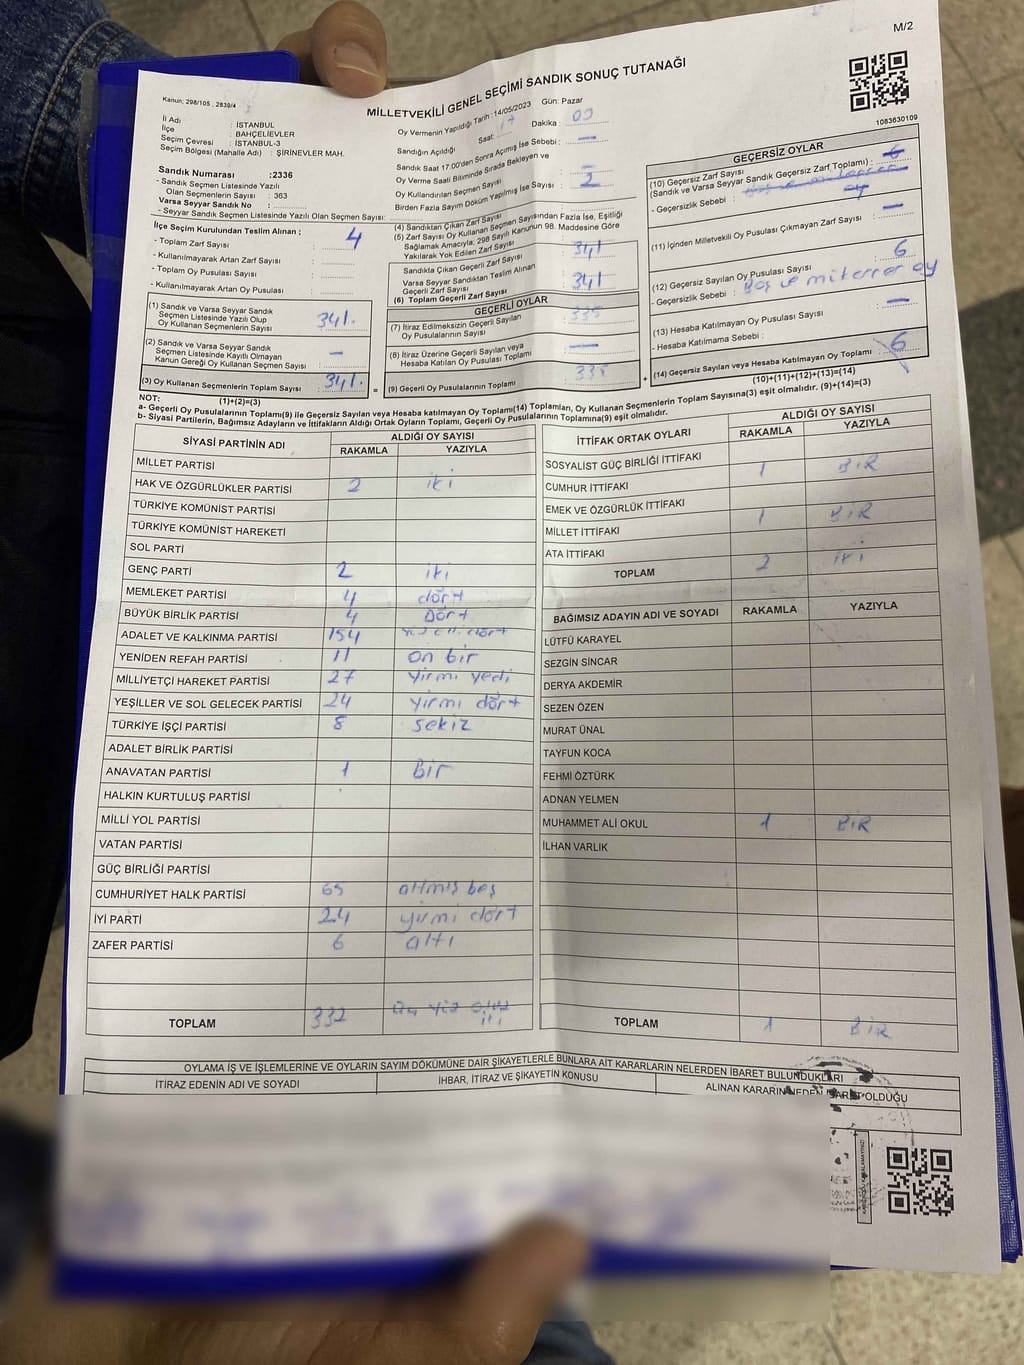 M/2
Kanun: 298/105 , 2839/4
MİLLETVEKİLİ GENEL SEÇİMİ SANDIK SONUÇ TUTANAĞI
1083630109
İl Adı : İSTANBUL
İlçe : BAHÇELİEVLER
Seçim Çevresi : İSTANBUL-3
Seçim Bölgesi (Mahalle Adı) : ŞİRİNEVLER MAH.
Oy Vermenin Yapıldığı Tarih :14/05/2023 Gün: Pazar
Sandığın Açıldığı Saat: 17 Dakika : 00
Sandık Saat 17.00'den Sonra Açımış İse Sebebi : —
Oy Verme Saati Bitiminde Sırada Bekleyen ve
Oy Kullandırılan Seçmen Sayısı
Birden Fazla Sayım Döküm Yapılmış İse Sayısı : 2
Sandık Numarası :2336
- Sandık Seçmen Listesinde Yazılı
Olan Seçmenlerin Sayısı : 363
Varsa Seyyar Sandık No :
- Seyyar Sandık Seçmen Listesinde Yazılı Olan Seçmen Sayısı:
İlçe Seçim Kurulundan Teslim Alınan ;
- Toplam Zarf Sayısı : 4
- Kullanılmayarak Artan Zarf Sayısı :
- Toplam Oy Pusulası Sayısı :
- Kullanılmayarak Artan Oy Pusulası :
(1) Sandık ve Varsa Seyyar Sandık
Seçmen Listesinde Yazılı Olup
Oy Kullanan Seçmenlerin Sayısı : 341.
(2) Sandık ve Varsa Seyyar Sandık
Seçmen Listesinde Kayıtlı Olmayan
Kanun Gereği Oy Kullanan Seçmen Sayısı : —
(3) Oy Kullanan Seçmenlerin Toplam Sayısı : 341. =
(1)+(2)=(3)
(4) Sandıktan Çıkan Zarf Sayısı
(5) Zarf Sayısı Oy Kullanan Seçmen Sayısından Fazla İse, Eşitliği
Sağlamak Amacıyla; 298 Sayılı Kanunun 98. Maddesine Göre
Yakılarak Yok Edilen Zarf Sayısı
Sandıkta Çıkan Geçerli Zarf Sayısı : 341
Varsa Seyyar Sandıktan Teslim Alınan
Geçerli Zarf Sayısı
(6) Toplam Geçerli Zarf Sayısı : 341
GEÇERLİ OYLAR
(7) İtiraz Edilmeksizin Geçerli Sayılan
Oy Pusulalarının Sayısı : 335
(8) İtiraz Üzerine Geçerli Sayılan veya
Hesaba Katılan Oy Pusulası Toplamı : —
(9) Geçerli Oy Pusulalarının Toplamı : 335 +
GEÇERSİZ OYLAR
(10) Geçersiz Zarf Sayısı
(Sandık ve Varsa Seyyar Sandık Geçersiz Zarf Toplamı) : 6
- Geçersizlik Sebebi :
(11) İçinden Milletvekili Oy Pusulası Çıkmayan Zarf Sayısı —
(12) Geçersiz Sayılan Oy Pusulası Sayısı : 6
- Geçersizlik Sebebi : Boş ve miterrer oy
(13) Hesaba Katılmayan Oy Pusulası Sayısı —
- Hesaba Katılmama Sebebi :
(14) Geçersiz Sayılan veya Hesaba Katılmayan Oy Toplamı : 6
(10)+(11)+(12)+(13)=(14)
NOT:
a- Geçerli Oy Pusulalarının Toplamı(9) ile Geçersiz Sayılan veya Hesaba katılmayan Oy Toplamı(14) Toplamları, Oy Kullanan Seçmenlerin Toplam Sayısına(3) eşit olmalıdır. (9)+(14)=(3)
b- Siyasi Partilerin, Bağımsız Adayların ve İttifakların Aldığı Ortak Oyların Toplamı, Geçerli Oy Pusulalarının Toplamına(9) eşit olmalıdır.
SİYASİ PARTİNİN ADI ALDIĞI OY SAYISI
RAKAMLA YAZIYLA
MİLLET PARTİSİ
HAK VE ÖZGÜRLÜKLER PARTİSİ 2 iki
TÜRKİYE KOMÜNİST PARTİSİ
TÜRKİYE KOMÜNİST HAREKETİ
SOL PARTİ
GENÇ PARTİ 2 iki
MEMLEKET PARTİSİ 4 dört
BÜYÜK BİRLİK PARTİSİ 4 Dört
ADALET VE KALKINMA PARTİSİ 154
YENİDEN REFAH PARTİSİ 11 on bir
MİLLİYETÇİ HAREKET PARTİSİ 27 yirmi yedi
YEŞİLLER VE SOL GELECEK PARTİSİ 24 yirmi dört
TÜRKİYE İŞÇİ PARTİSİ 8 sekiz
ADALET BİRLİK PARTİSİ
ANAVATAN PARTİSİ 1 Bir
HALKIN KURTULUŞ PARTİSİ
MİLLİ YOL PARTİSİ
VATAN PARTİSİ
GÜÇ BİRLİĞİ PARTİSİ
CUMHURİYET HALK PARTİSİ 65 altmış beş
İYİ PARTİ 24 yirmi dört
ZAFER PARTİSİ 6 altı
TOPLAM 332 üç yüz otuz iki
İTTİFAK ORTAK OYLARI ALDIĞI OY SAYISI
RAKAMLA YAZIYLA
SOSYALİST GÜÇ BİRLİĞİ İTTİFAKI
CUMHUR İTTİFAKI 1 BİR
EMEK VE ÖZGÜRLÜK İTTİFAKI
MİLLET İTTİFAKI 1 BİR
ATA İTTİFAKI
TOPLAM 2 iki
BAĞIMSIZ ADAYIN ADI VE SOYADI RAKAMLA YAZIYLA
LÜTFÜ KARAYEL
SEZGİN SİNCAR
DERYA AKDEMİR
SEZEN ÖZEN
MURAT ÜNAL
TAYFUN KOCA
FEHMİ ÖZTÜRK
ADNAN YELMEN
MUHAMMET ALİ OKUL 1 BİR
İLHAN VARLIK
TOPLAM 1 BİR
OYLAMA İŞ VE İŞLEMLERİNE VE OYLARIN SAYIM DÖKÜMÜNE DAİR ŞİKAYETLERLE BUNLARA AİT KARARLARIN NELERDEN İBARET BULUNDUKLARI
İTİRAZ EDENİN ADI VE SOYADI İHBAR, İTİRAZ VE ŞİKAYETİN KONUSU ALINAN KARARIN NEDEN İBARET OLDUĞU